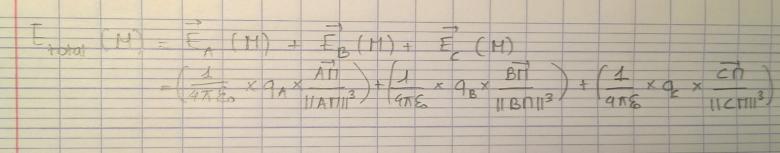 E⃗_total (M) = E⃗_A (M) + E⃗_B (M) + E⃗_C (M)
= (1/4πε₀ × q_A × AM⃗/||AM||³) + (1/4πε₀ × q_B × BM⃗/||BM||³) + (1/4πε₀ × q_C × CM⃗/||CM||³)